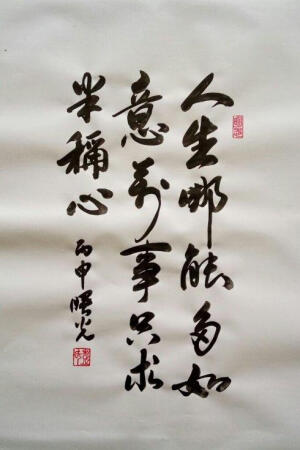 人生哪能多如
意万事只求
半称心
丙申曙光